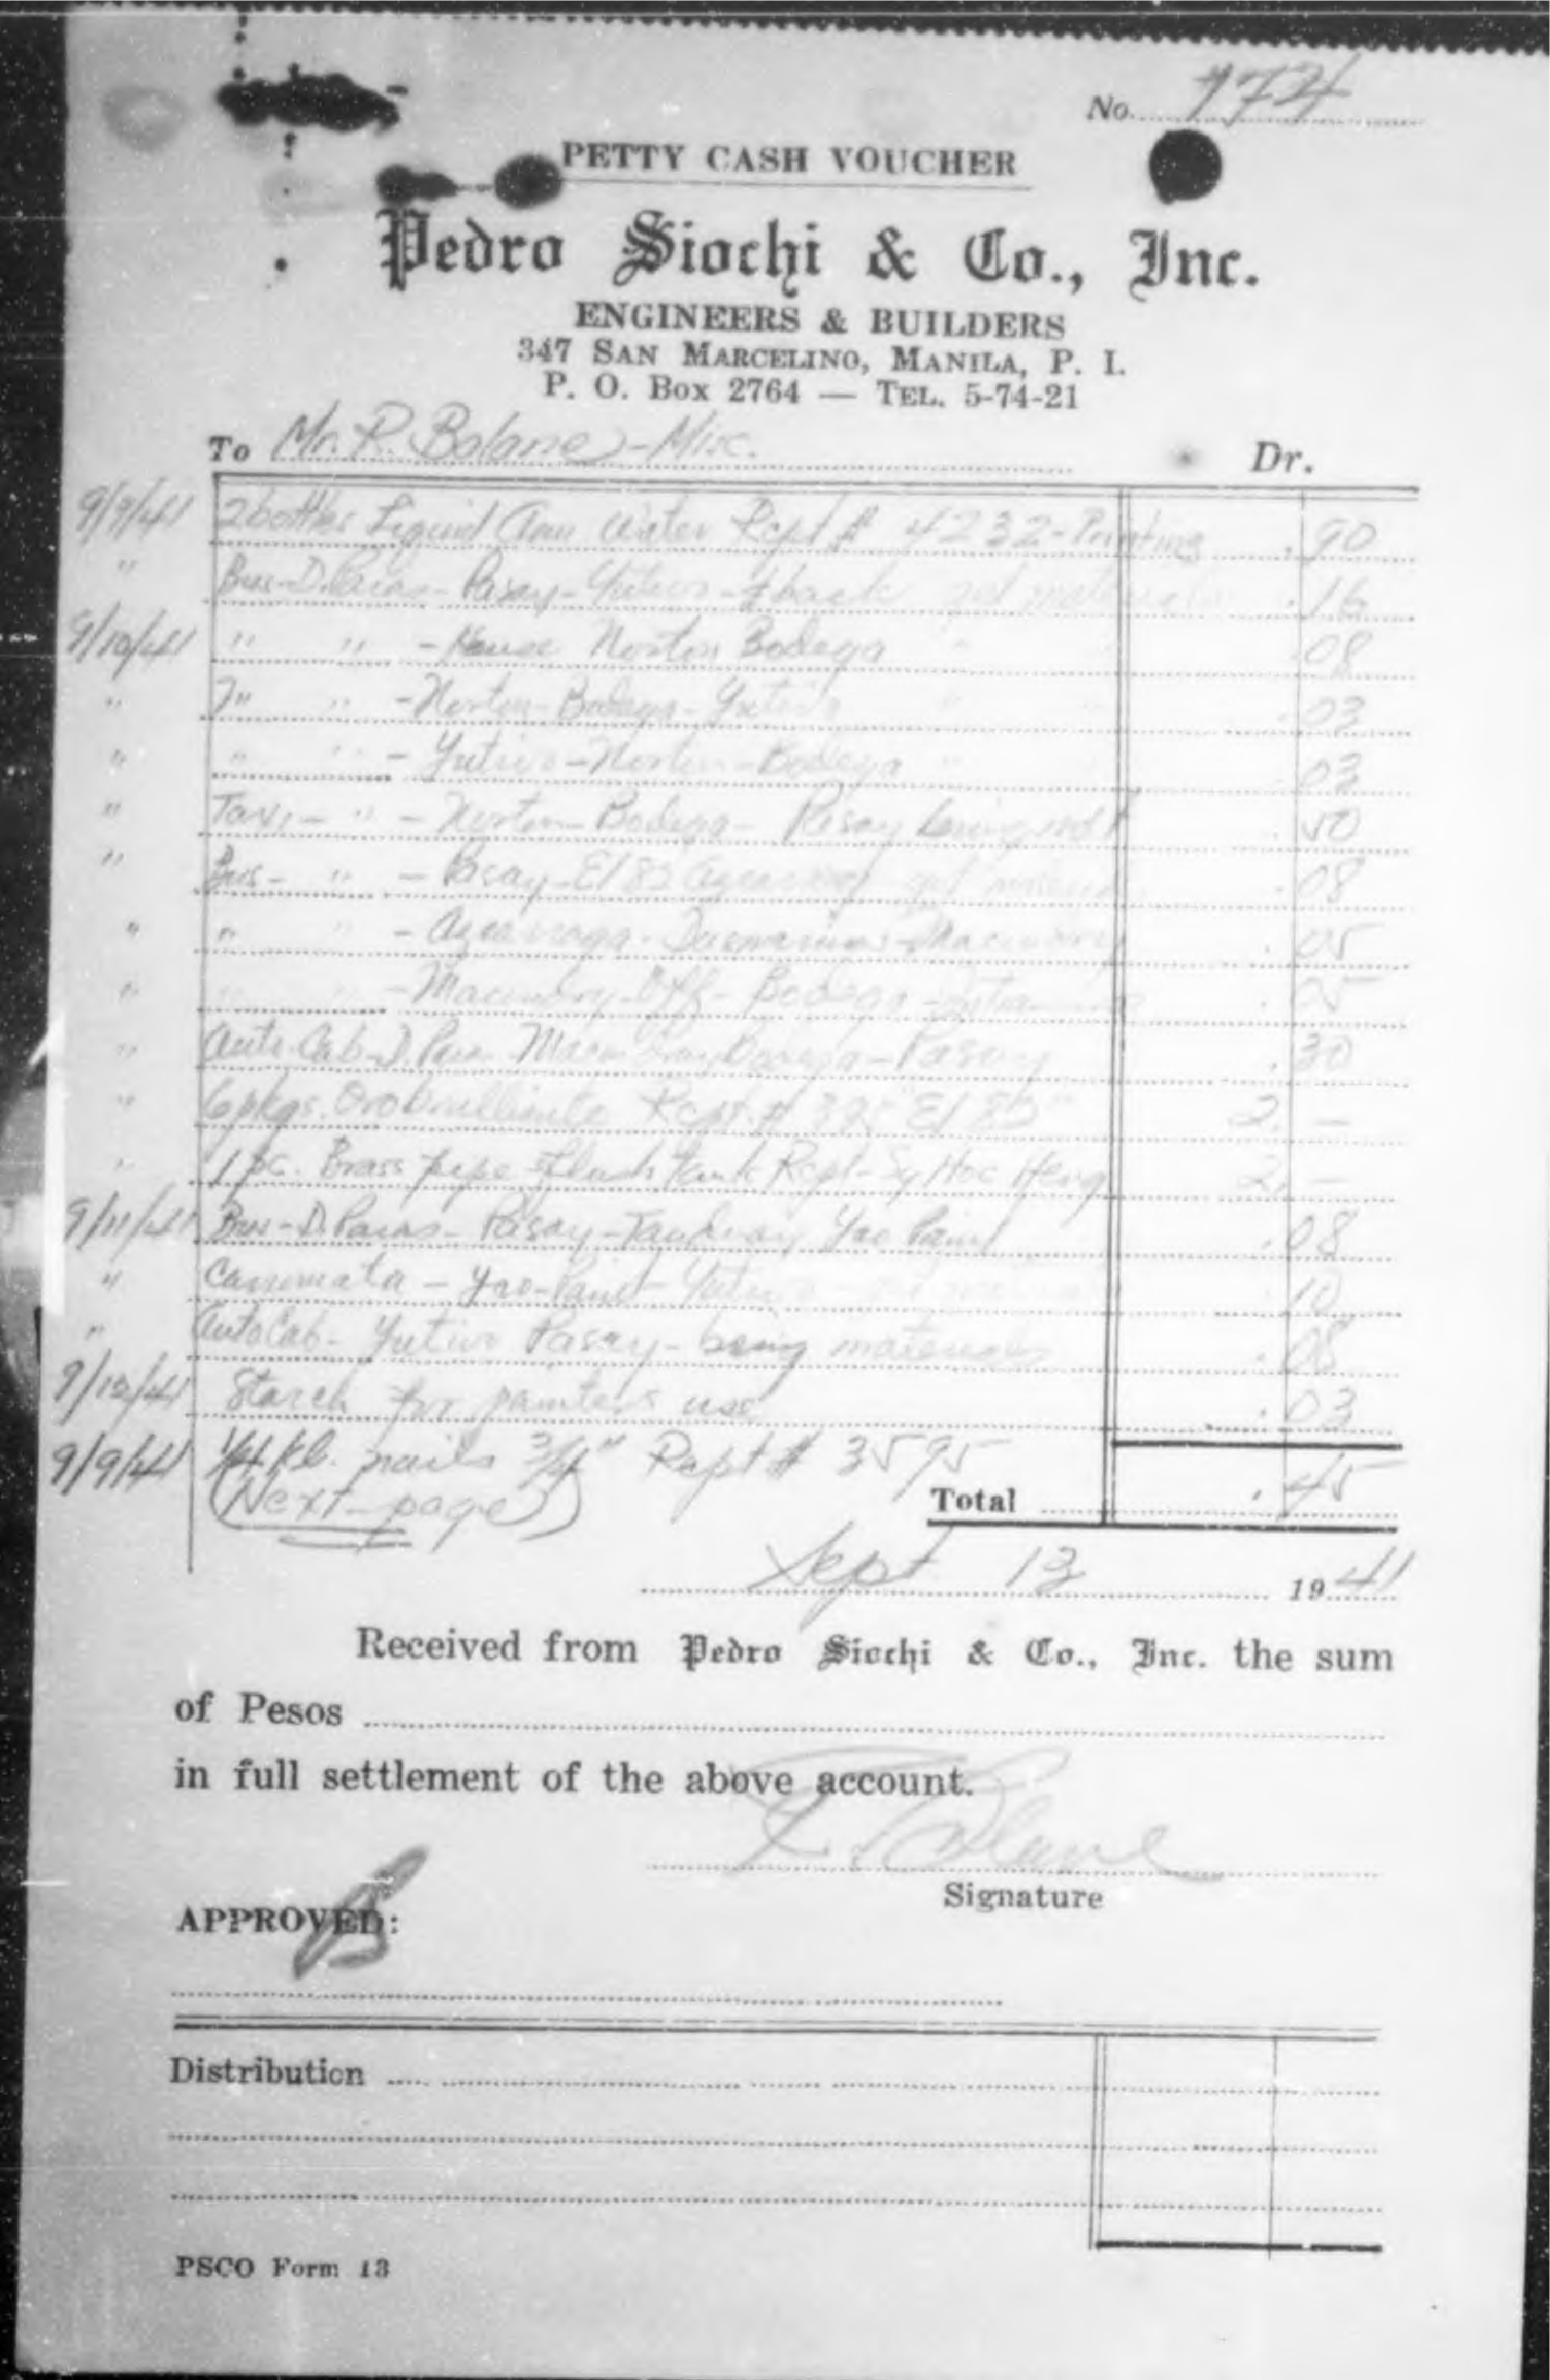 No. 174
PETTY CASH VOUCHER
Pedro Siochi & Co., Inc.
ENGINEERS & BUILDERS
347 SAN MARCELINO, MANILA, P. I.
P. O. Box 2764 — TEL. 5-74-21
To Mr. R. Balane - Misc. Dr.
9/9/41 2 bottles Liquid Water Rcpt # 4232 - .90
" Bus - D. Paras - Pasay - Yutivo - & back .16
9/10/41 " " - House Norton Bodega 08
" " " - Norton - Bodega - Yutivo .03
" " " - Yutivo - Norton - Bodega .03
" Taxi - " - Norton - Bodega - Pasay .50
" Bus - " - Pasay - El 82 .08
" " " - Azcarraga - .05
" " " - Bodega - .05
" Auto Cab - D. Paras - Pasay .30
" 6 pkgs. Orobrillante Rcpt. # El 82 2. —
" 1 pc. Brass pipe flush tank Rcpt - Sy Hoc Heng 2. —
9/11/41 Bus - D. Paras - Pasay - Tanduay Yao Paint .08
" Carromata - Yao - Paint - Yutivo .10
" Auto Cab - Yutivo Pasay - bring materials .08
9/12/41 Starch for painters use .03
9/9/41 1/4 kl. nails 3/4" Rcpt # 3595
(Next page) Total .45
Sept 13 1941
Received from Pedro Siochi & Co., Inc. the sum
of Pesos
in full settlement of the above account.
R. Balane
Signature
APPROVED:
Distribution
PSCO Form 13